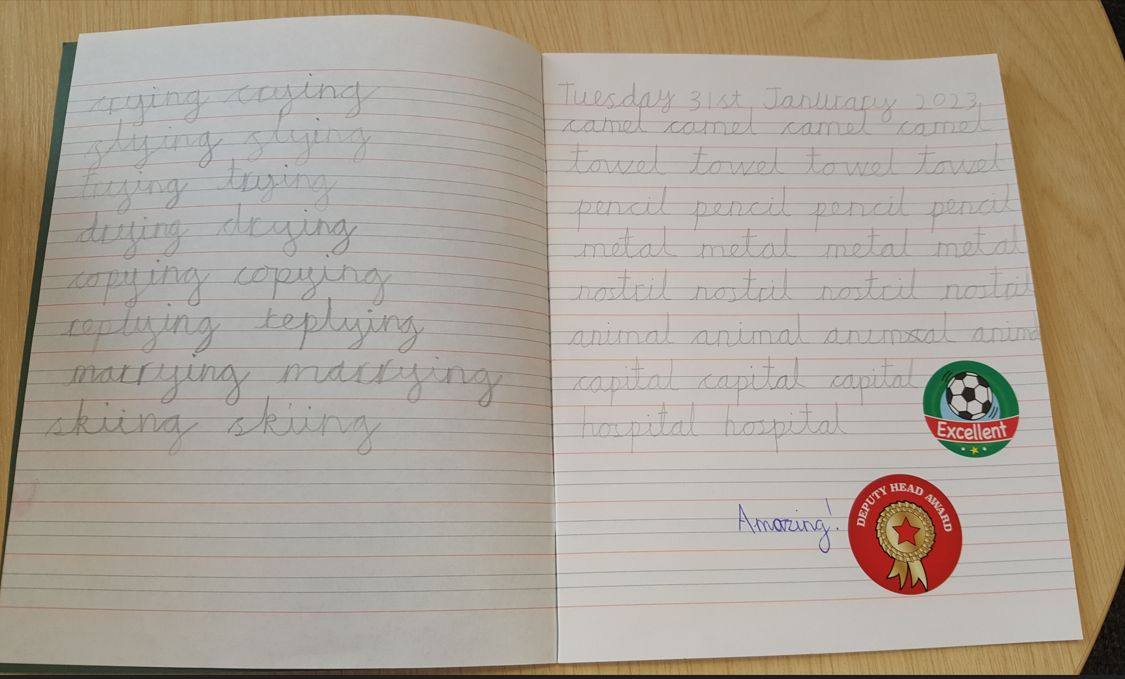 crying crying
slying slying
trying trying
drying drying
copying copying
replying replying
marrying marrying
skiing skiing
Tuesday 31st January 2023
camel camel camel camel
towel towel towel towel
pencil pencil pencil pencil
metal metal metal metal
nostril nostril nostril nostril
animal animal animal anima
capital capital capital
hospital hospital
Excellent
DEPUTY HEAD AWARD
Amazing!